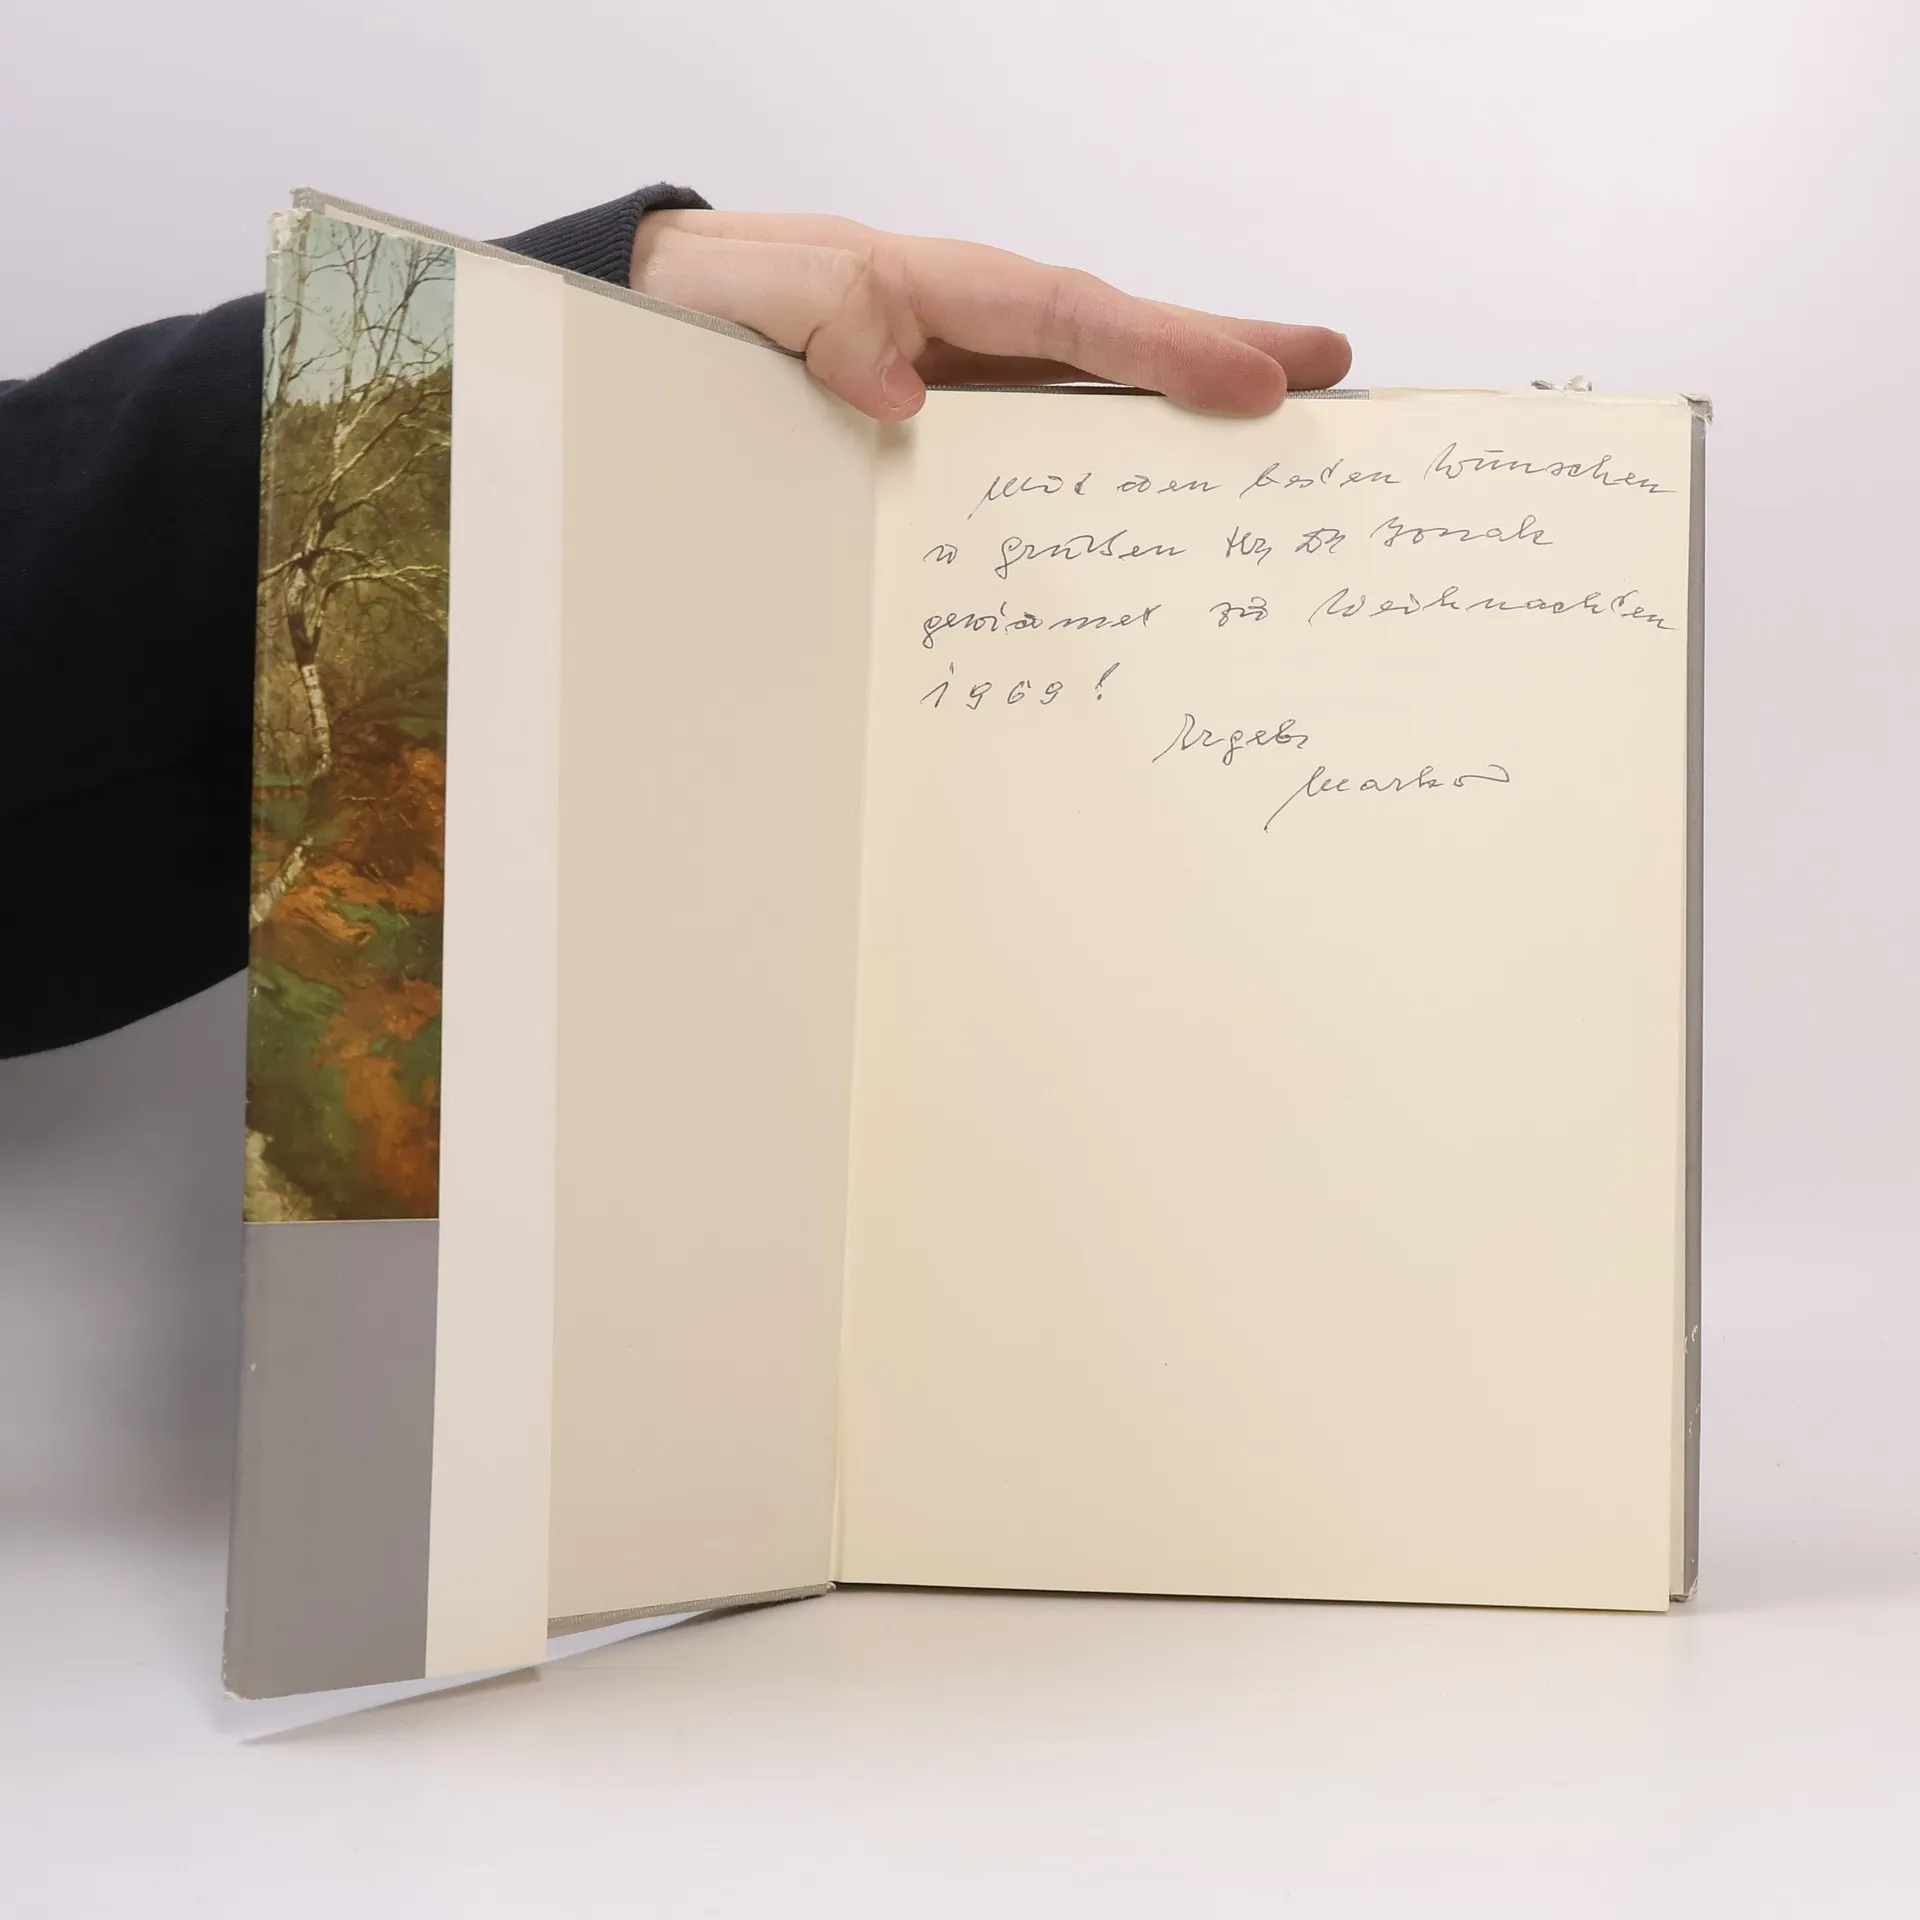 Mit den besten Wünschen
u Grüßen Hr Dr
gewidmet zu Weihnachten
1969!
Ergeb